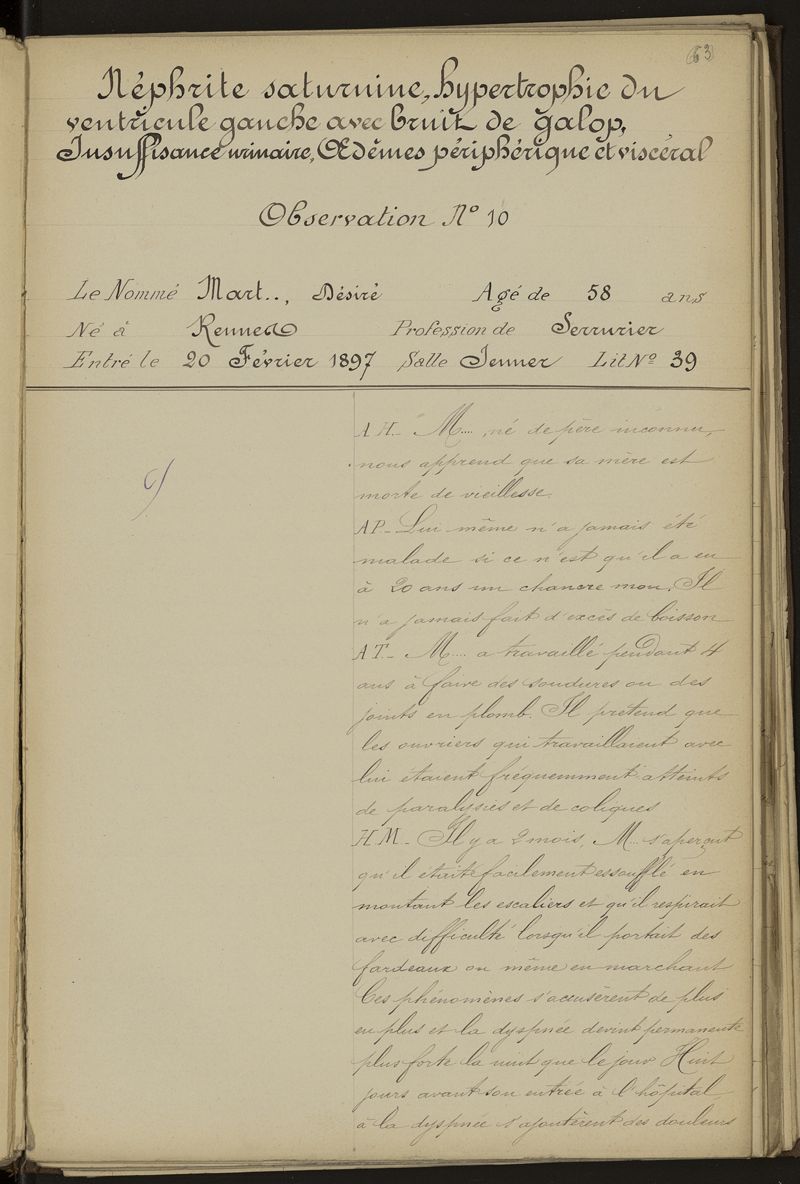 63
Néphrite saturnine, hypertrophie du
ventricule gauche avec bruit de galop,
Insuffisance urinaire, Œdèmes périphérique et viscéral
Observation No 10
Le Nommé Mart.., Désiré Agé de 58 ans
Né à Rennes Profession de Serrurier
Entré le 20 Février 1897 Salle Jenner Lit No 39
A H_ M...., né de père inconnu,
nous apprend que sa mère est
morte de vieillesse.
AP_ Lui même n'a jamais été
malade si ce n'est qu'il a eu
à 20 ans un chancre mou. Il
n'a jamais fait d'excès de boisson
A T_ M.... a travaillé pendant 4
ans à faire des soudures ou des
joints en plomb. Il prétend que
les ouvriers qui travaillaient avec
lui étaient fréquemment atteints
de paralysies et de coliques
H M_ Il y a 2 mois, M... s'aperçut
qu'il était facilement essoufflé en
montant les escaliers et qu'il respirait
avec difficulté lorsqu'il portait des
fardeaux ou même en marchant
Ces phénomènes s'accusèrent de plus
en plus et la dyspnée devint permanente
plus forte la nuit que le jour. Huit
jours avant son entrée à l'hôpital,
à la dyspnée s'ajoutèrent des douleurs